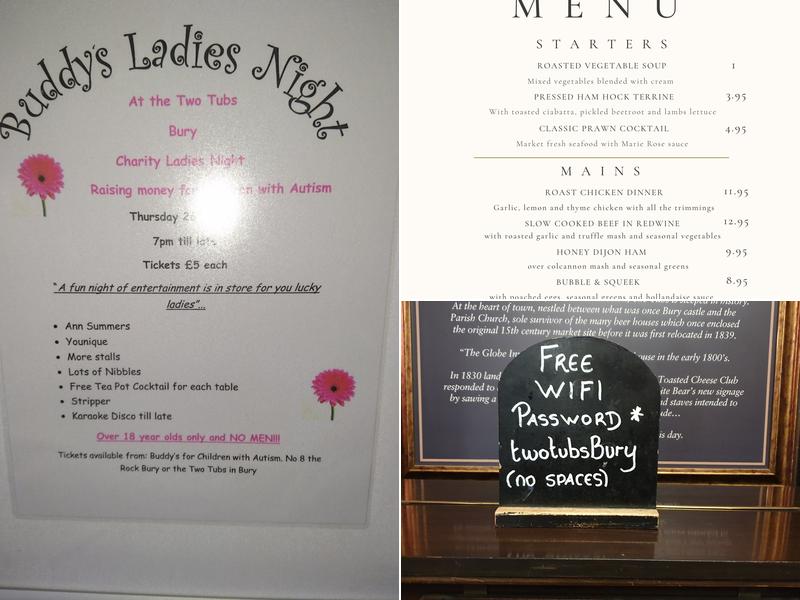 Buddy's Ladies Night
At the Two Tubs
Bury
Charity Ladies Night
Raising money with Autism
Thursday
7pm till late
Tickets £5 each
"A fun night of entertainment is in store for you lucky
ladies"...
Ann Summers
Younique
More stalls
Lots of Nibbles
Free Tea Pot Cocktail for each table
Stripper
Karaoke Disco till late
Over 18 year olds only and NO MEN!!!
Tickets available from: Buddy's for Children with Autism. No 8 the
Rock Bury or the Two Tubs in Bury
MENU
STARTERS
ROASTED VEGETABLE SOUP 1
Mixed vegetables blended with cream
PRESSED HAM HOCK TERRINE 3.95
With toasted ciabatta, pickled beetroot and lambs lettuce
CLASSIC PRAWN COCKTAIL 4.95
Market fresh seafood with Marie Rose sauce
MAINS
ROAST CHICKEN DINNER 11.95
Garlic, lemon and thyme chicken with all the trimmings
SLOW COOKED BEEF IN REDWINE 12.95
with roasted garlic and truffle mash and seasonal vegetables
HONEY DIJON HAM 9.95
over colcannon mash and seasonal greens
BUBBLE & SQUEEK 8.95
with poached eggs, seasonal greens and hollandaise sauce
is steeped in history.
At the heart of town, nestled between what was once Bury castle and the
Parish Church, sole survivor of the many beer houses which once enclosed
the original 15th century market site before it was first relocated in 1839.
"The Globe house in the early 1800's.
In 1830 Toasted Cheese Club
responded to Bear's new signage
by sawing a and staves intended to
is day.
FREE
WIFI
PASSWORD *
twotubsBury
(no SPACES)